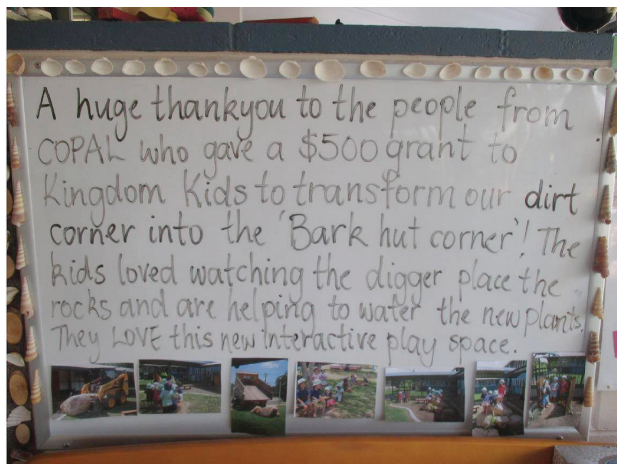 A huge thankyou to the people from
COPAL who gave a $500 grant to
Kingdom Kids to transform our dirt
corner into the 'Bark hut corner'! The
kids loved watching the digger place the
rocks and are helping to water the new plants.
They LOVE this new interactive play space.